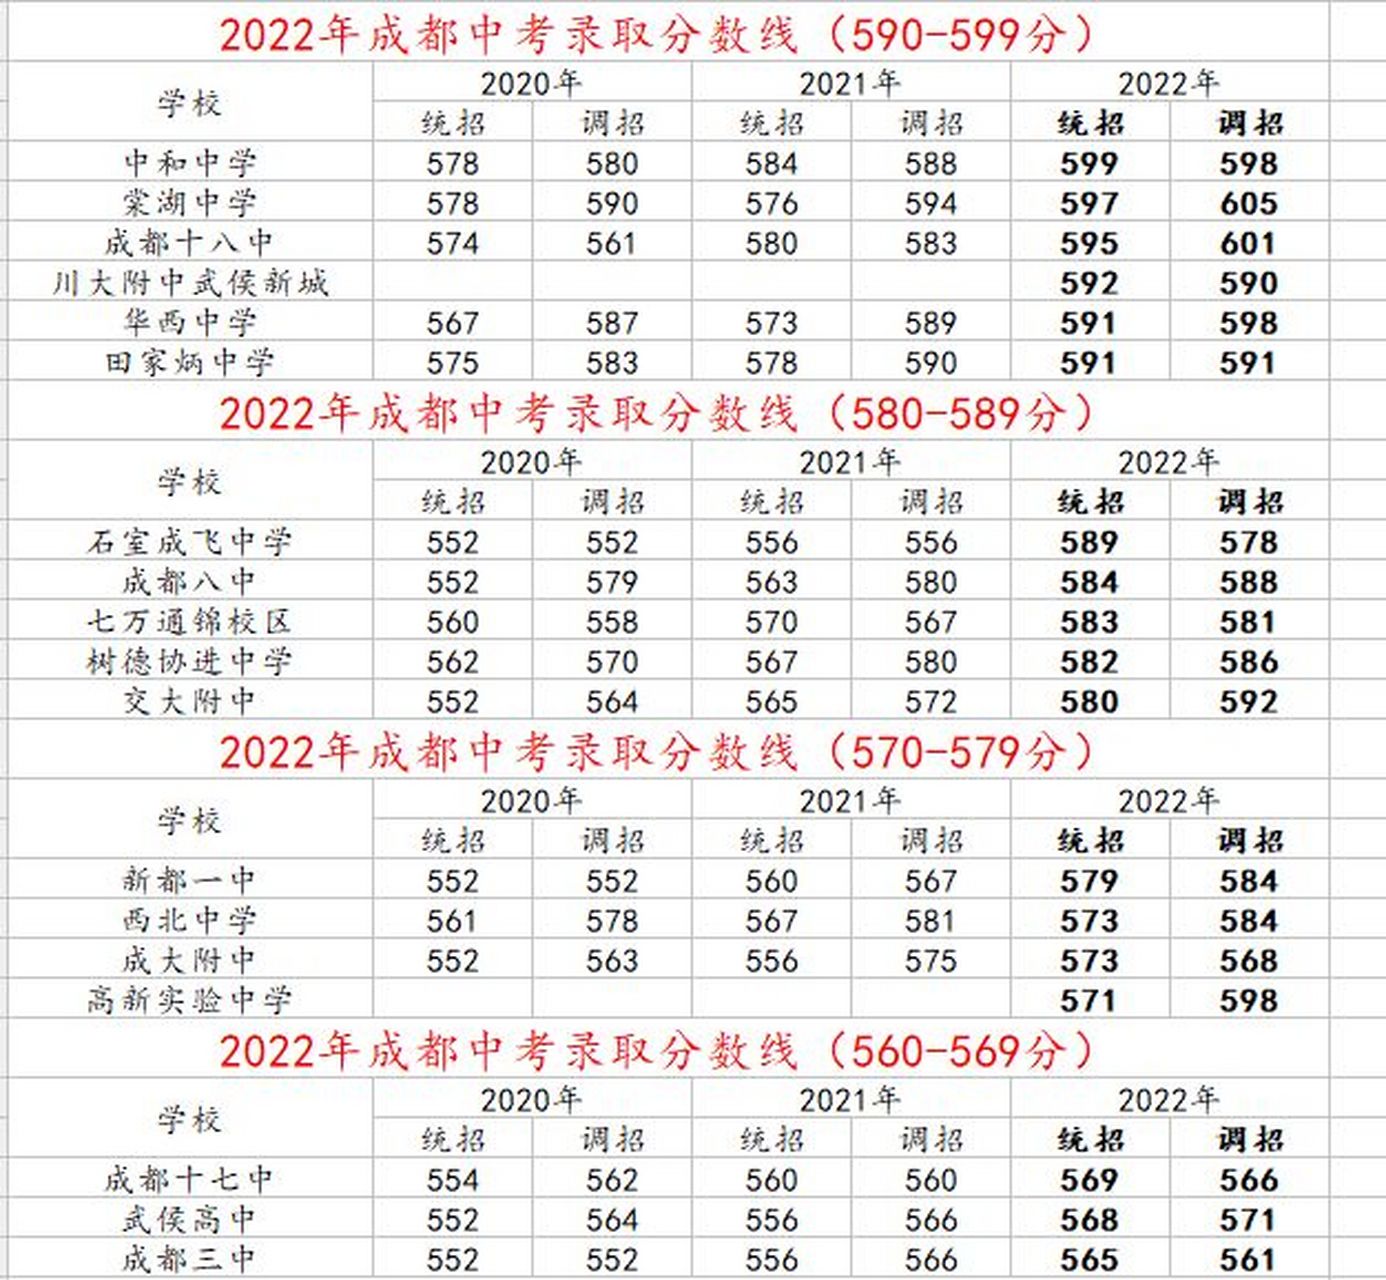 2022年成都中考录取分数线（590-599分）
学校 2020年 2021年 2022年
统招 调招 统招 调招 统招 调招
中和中学 578 580 584 588 599 598
棠湖中学 578 590 576 594 597 605
成都十八中 574 561 580 583 595 601
川大附中武侯新城 592 590
华西中学 567 587 573 589 591 598
田家炳中学 575 583 578 590 591 591
2022年成都中考录取分数线（580-589分）
学校 2020年 2021年 2022年
统招 调招 统招 调招 统招 调招
石室成飞中学 552 552 556 556 589 578
成都八中 552 579 563 580 584 588
七万通锦校区 560 558 570 567 583 581
树德协进中学 562 570 567 580 582 586
交大附中 552 564 565 572 580 592
2022年成都中考录取分数线（570-579分）
学校 2020年 2021年 2022年
统招 调招 统招 调招 统招 调招
新都一中 552 552 560 567 579 584
西北中学 561 578 567 581 573 584
成大附中 552 563 556 575 573 568
高新实验中学 571 598
2022年成都中考录取分数线（560-569分）
学校 2020年 2021年 2022年
统招 调招 统招 调招 统招 调招
成都十七中 554 562 560 560 569 566
武侯高中 552 564 556 566 568 571
成都三中 552 552 556 566 565 561